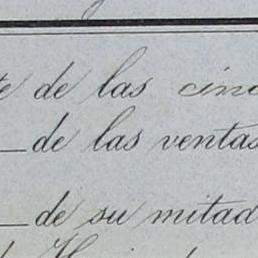 te de las cinc
de las ventas
de su mitad